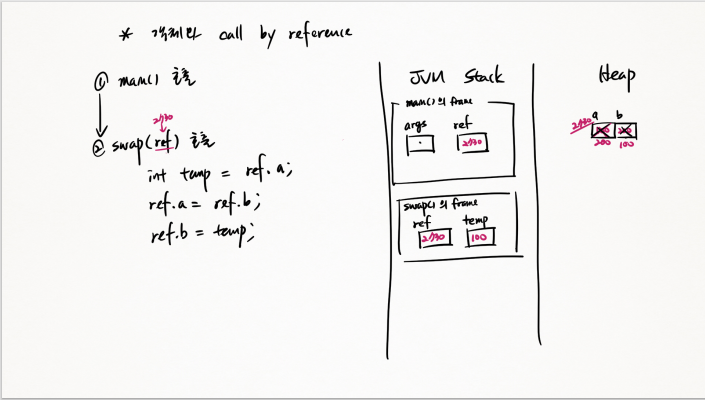 * 객체와 call by reference
① main() 호출
② swap(ref) 호출
int temp = ref.a;
ref.a = ref.b;
ref.b = temp;
JVM Stack
main()의 frame
args ref
swap()의 frame
ref temp
100
Heap
a b
200 100